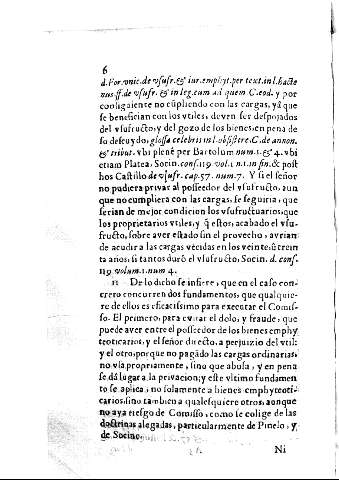 6
d. For. vnic. de vsufr. & iur. emphyt. per text. in l. hacte
nus ff. de vsufr. & in leg. cum ad quem C. eod. y por
consiguiente no cũpliendo con las cargas, yà que
se benefician con los vtiles, deven ser despojados
del vsufructo, y del gozo de los bienes, en pena de
su descuydo, glossa celebris in l. obsistere C. de annon.
& tribut. vbi plenè per Bartolum num. 1. & 4. vbi
etiam Platea, Socin. cons. 119. vol. 1. n. 1. in fin. & post
hos Castillo de vsufr. cap. 57. num. 7. Y si el señor
no pudiera privar al posseedor del vsufructo, aun
que no cumpliera con las cargas, se seguiria, que
serian de mejor condicion los vsufructuarios, que
los proprietarios vtiles, y q̃ estos, acabado el vsu-
fructo, sobre aver estado sin el provecho, avrian
de acudir a las cargas vécidas en los veinte, ù trein
ta años, si tantos durò el vsufructo, Socin. d. cons.
119. volum. 1. num 4.
11 De lo dicho se infiere, que en el caso con-
creto concurren dos fundamentos, que qualquie-
re de ellos es eficatissimo para executar el Comis-
so. El primero, para evitar el dolo, y fraude, que
puede aver entre el possedor de los bienes emphy
teoticarios, y el señor directo, a perjuizio del vtil:
y el otro, porque no pagãdo las cargas ordinarias,
no vía propriamente, sino que abusa, y en pena
se dà lugar a la privacion; y este vltimo fundamen
to se aplica, no solamente a bienes emphyteoti-
carios, sino tambien a qualesquiere otros, aunque
no aya riesgo de Comisso, como se colige de las
doctrinas alegadas, particularmente de Pinelo, y
de Socino.
Ni